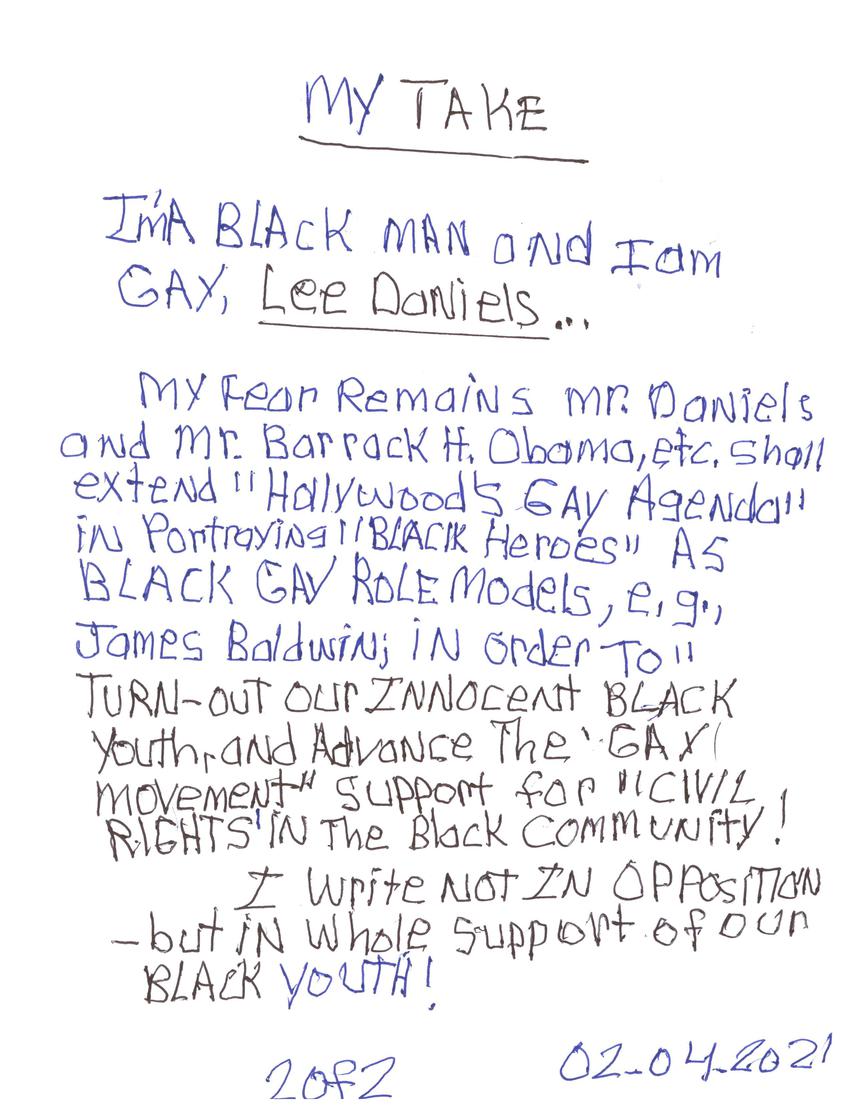 MY TAKE
I'm A BLACK MAN and I am
GAY, Lee Daniels...
My Fear Remains Mr. Daniels
and Mr. Barrack H. Obama, etc. shall
extend "Hallywood's GAY Agenda"
in Portraying "BLACK Heroes" AS
BLACK GAY ROLE Models, e.g.,
James Baldwin; in order To "
TURN-OUT OUR INNOCENT BLACK
Youth, and Advance The 'GAY
movement" support for "CIVIL
RIGHTS" IN The Black Community!
I Write NOT IN OPPOSITION
-but IN Whole support of our
BLACK YOUTH!
2 of 2 02-04-2021